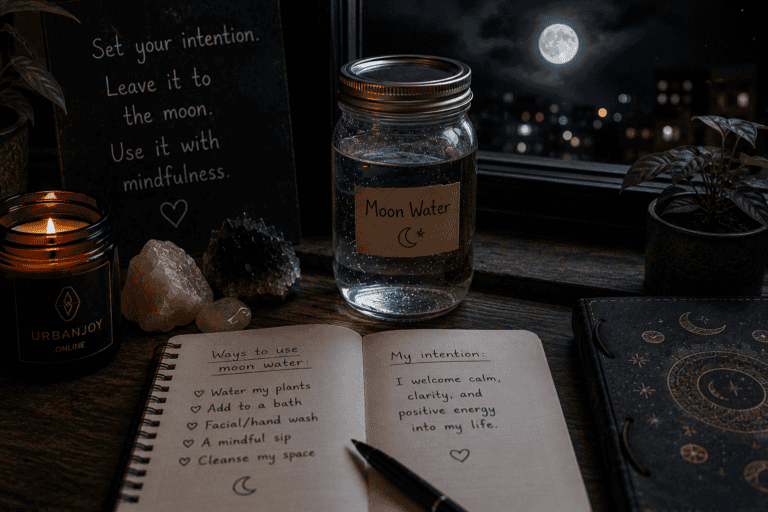 Set your intention.
Leave it to
the moon.
Use it with
mindfulness.
Moon Water
URBANJOY
.ONLINE
Ways to use
moon water:
Water my plants
Add to a bath
Facial/hand wash
A mindful sip
Cleanse my space
My intention:
I welcome calm,
clarity, and
positive energy
into my life.